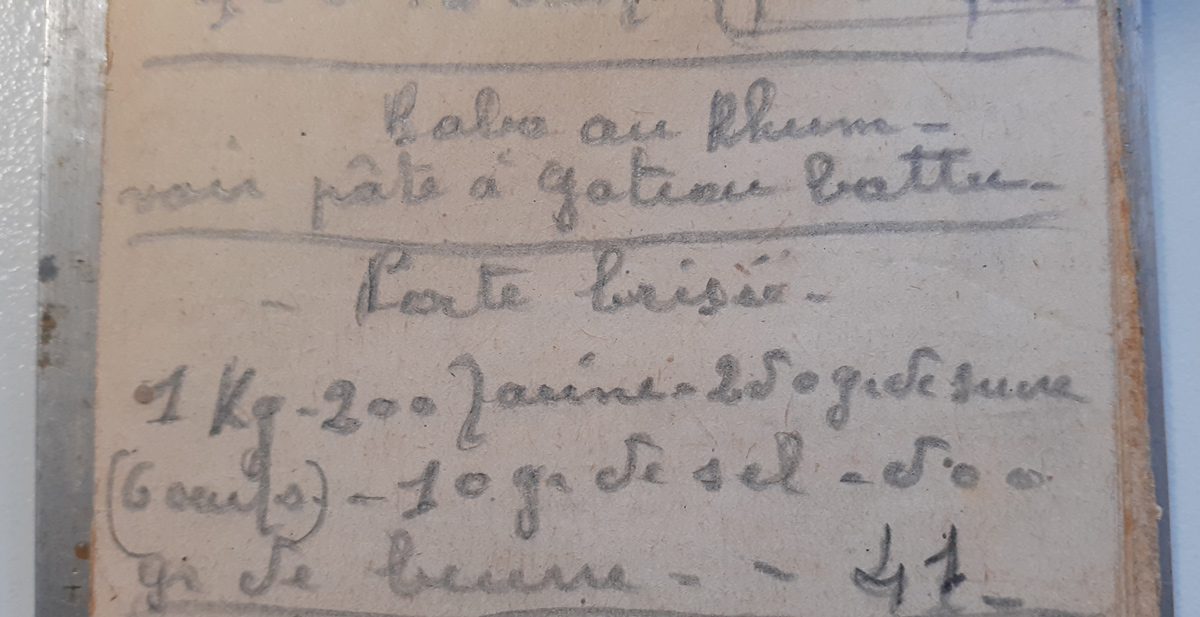 Baba au Rhum -
voir pâte à gateau battu -
- Paste brisée -
1 Kg - 200 farine - 250 g. de sucre
(6 oeufs) - 10 g. de sel - 500
gr de beurre - - 41 -